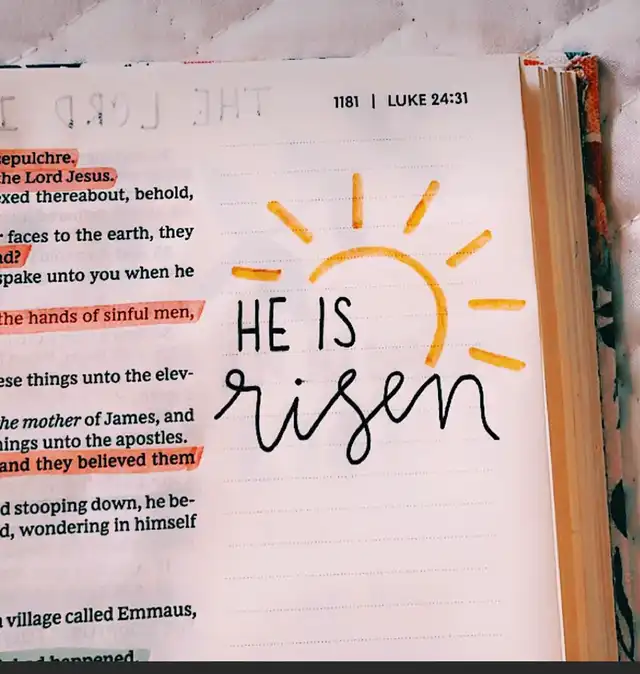 THE LORD I
1181 | LUKE 24:31
epulchre.
the Lord Jesus.
exed thereabout, behold,
faces to the earth, they
ad?
spake unto you when he
the hands of sinful men,
ese things unto the elev-
he mother of James, and
ings unto the apostles.
and they believed them
d stooping down, he be-
d, wondering in himself
village called Emmaus,
had happened.
HE IS
risen